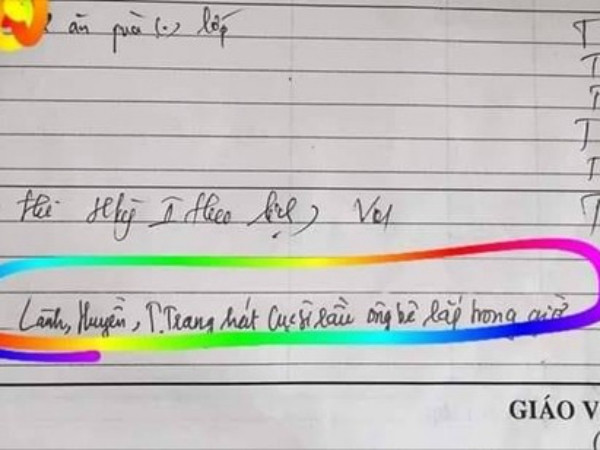 ăn quà (.) lớp
T
T
T
T
T
thi Hkỳ I theo lịch
T
Lành, Huyền, T.Trang hát Cục sì lầu ông bê lắp trong giờ
GIÁO V